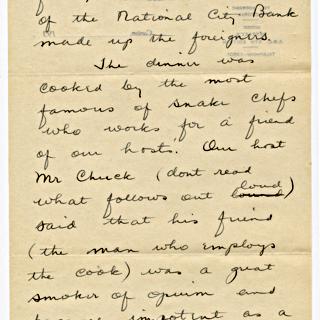 of the National City Bank
made up the foreigners.
The dinner was
cooked by the most
famous of snake chefs
who works for a friend
of our hosts. Our host
Mr Chuck (dont read
what follows out loud)
said that his friend
(the man who employs
the cook) was a great
smoker of opium and
became impotent as a